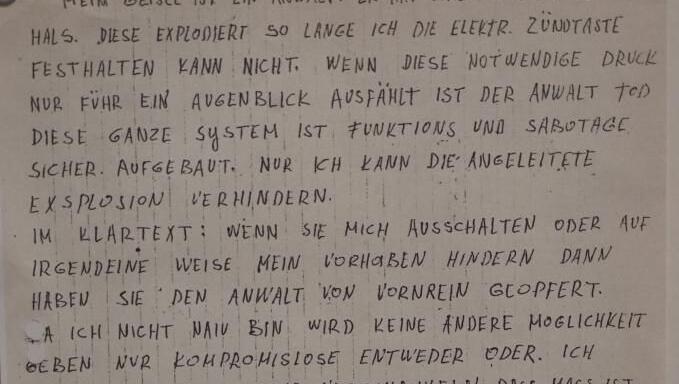 MEIN GEISEL IST EIN ANWALT. ER HAT
HALS. DIESE EXPLODIERT SO LANGE ICH DIE ELEKTR. ZÜNDTASTE
FESTHALTEN KANN NICHT. WENN DIESE NOTWENDIGE DRUCK
NUR FÜHR EIN AUGENBLICK AUSFÄHLT IST DER ANWALT TOD
DIESE GANZE SYSTEM IST FUNKTIONS UND SABOTAGE
SICHER. AUFGEBAUT. NUR ICH KANN DIE ANGELEITETE
EXSPLOSION VERHINDERN.
IM KLARTEXT: WENN SIE MICH AUSSCHALTEN ODER AUF
IRGENDEINE WEISE MEIN VORHABEN HINDERN DANN
HABEN SIE DEN ANWALT VON VORNREIN GEOPFERT.
A ICH NICHT NAIV BIN WIRD KEINE ANDERE MOGLICHKEIT
GEBEN NUR KOMPROMISLOSE ENTWEDER ODER. ICH